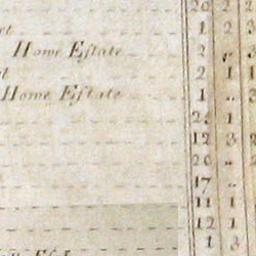 20 2 2
rt 1 2 3
Home Eſtate 2 .. 3
t 2 1 1
Home Eſtate 1 .. 3
28 1
12 3 2
20 .. 2
17 ..
11 1
12 1
1 3